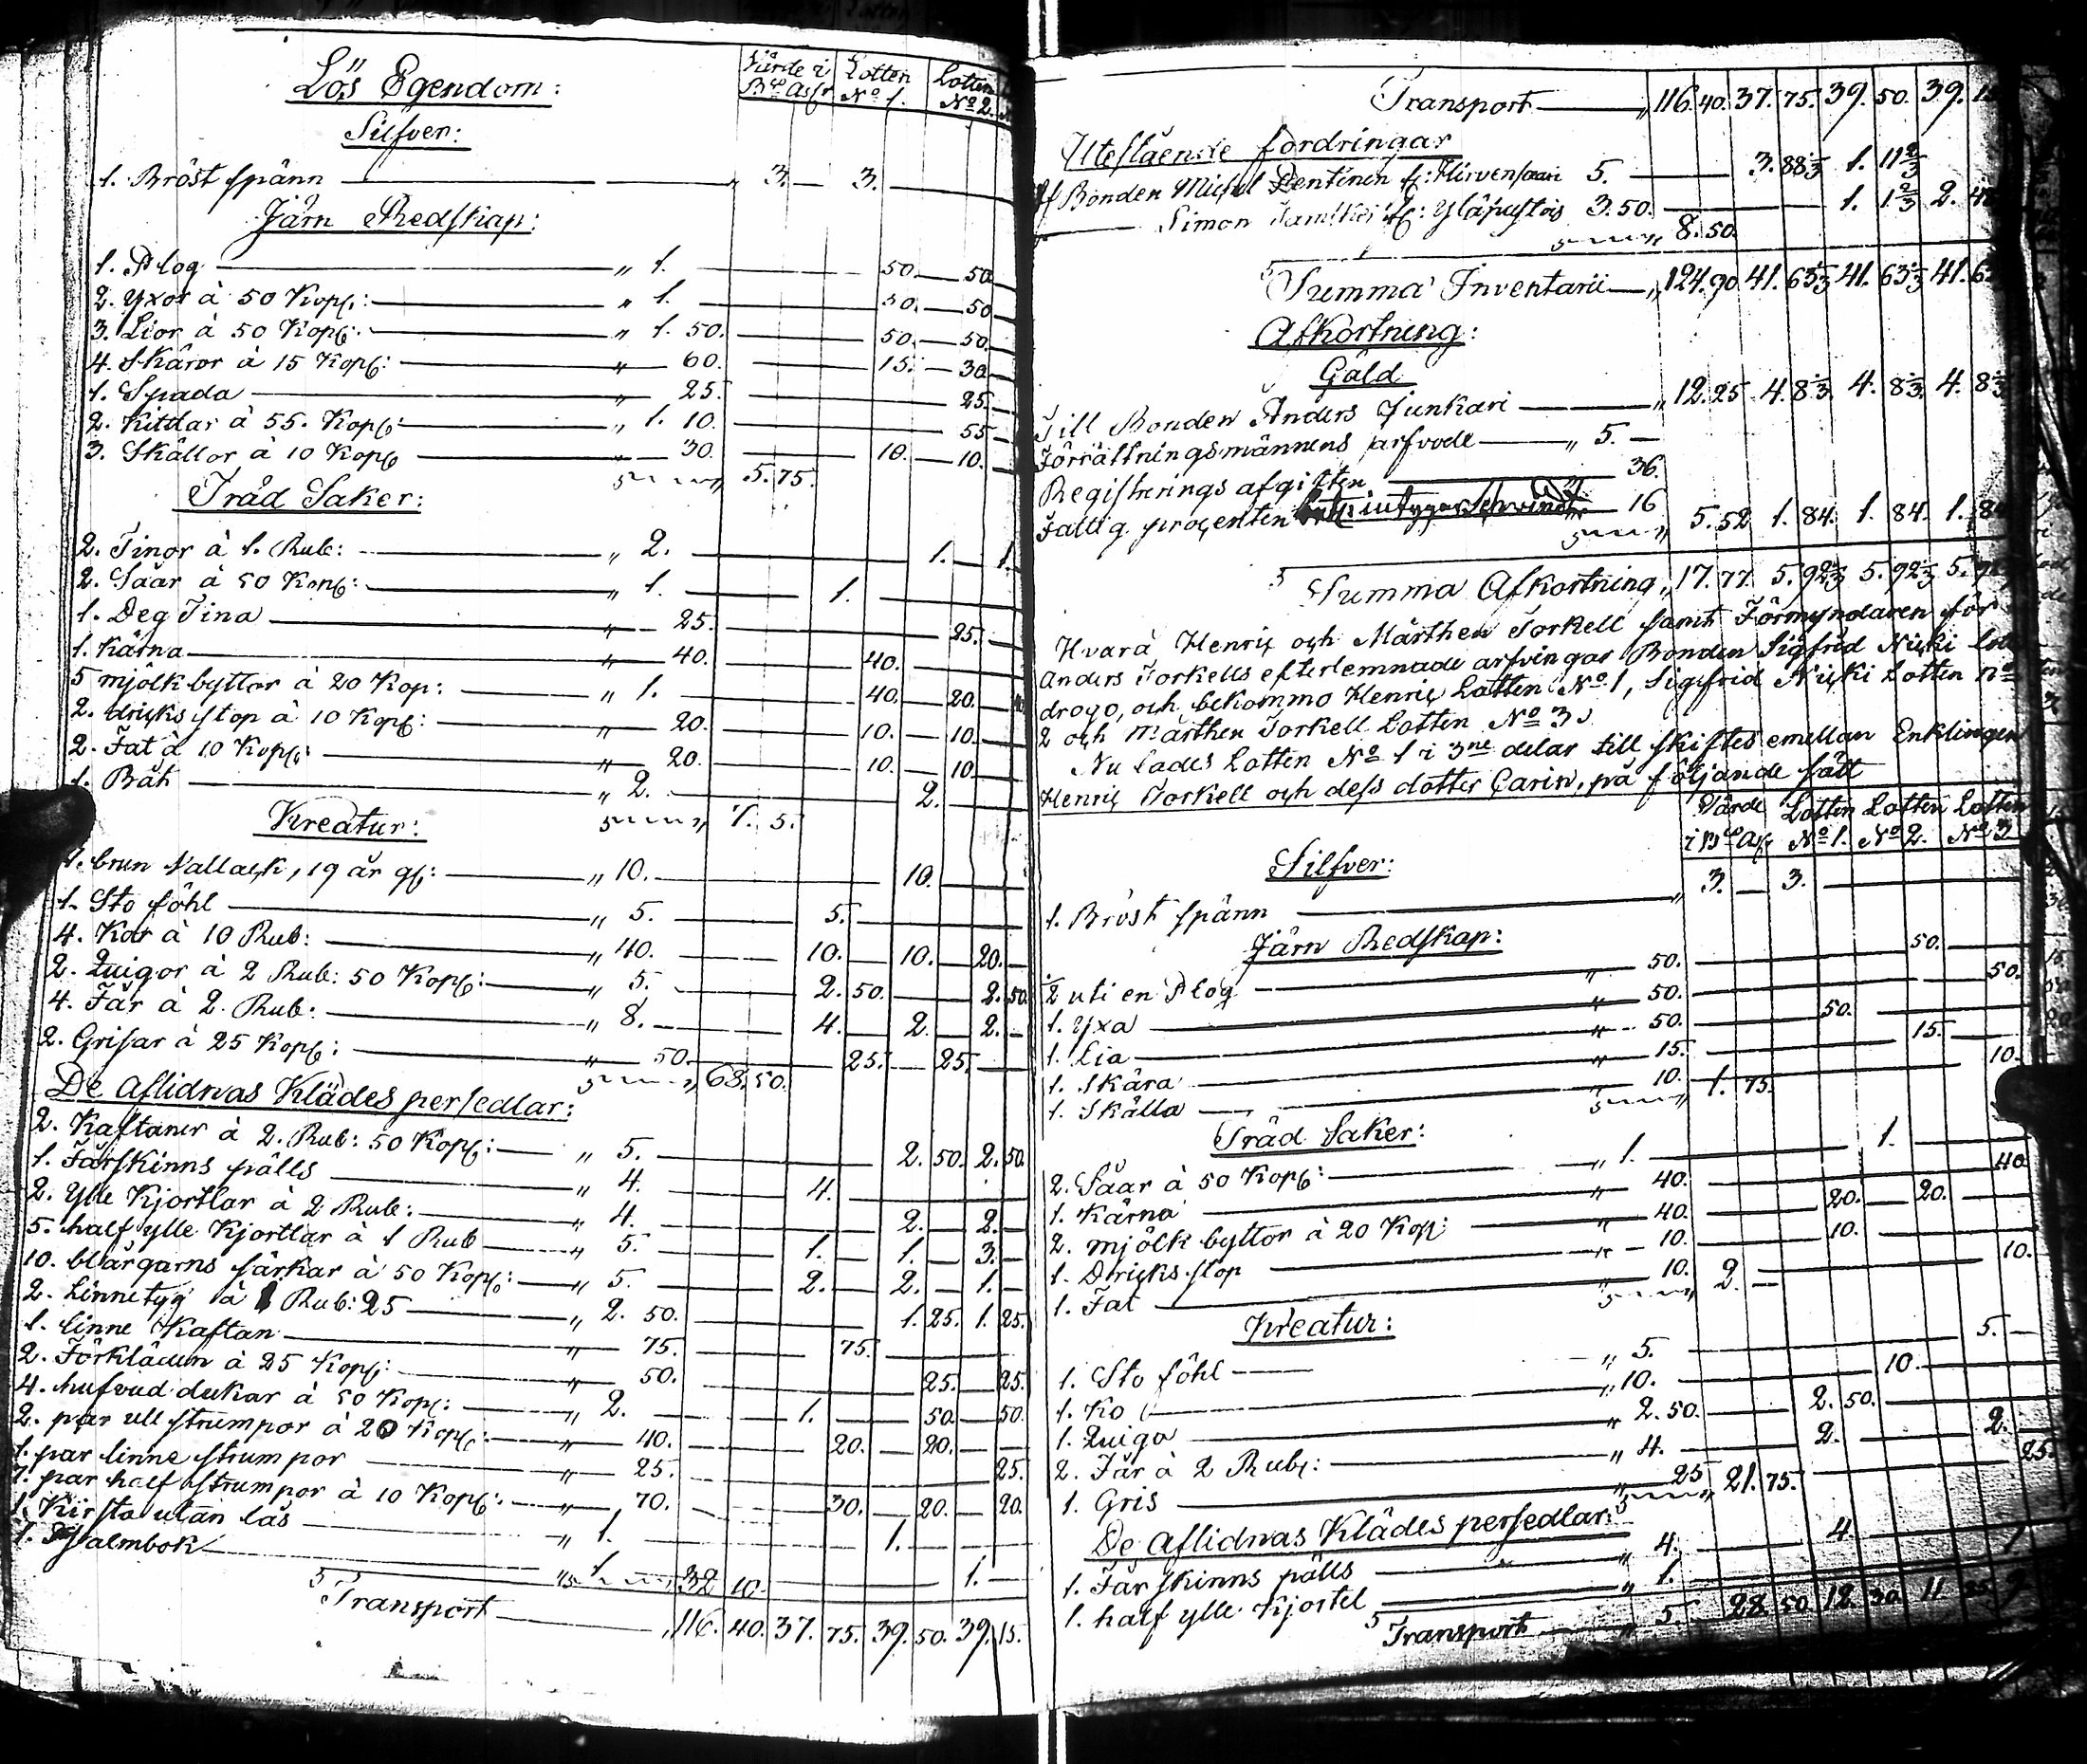 Lös Egendom:
Värde i Lotten Lotten
Bco Assr No 1. No 2.
Silfver:
1. Bröst spänn — „ 3. — 3.
Järn Redskap:
1. Plog — „ 1. — 50. — 50.
2. Yxor à 50 Kop: — „ 1. — 50. — 50.
3. Lior à 50 Kop: — „ 1. 50. — 50. — 50.
4. Skäror à 15 Kop: — „ 60. — 15. — 30.
1. Spada — „ 25. — 25.
2. Kittlar à 55. Kop: — „ 1. 10. — 55.
3. Skällor à 10 Kop — „ 30. — 10. — 10.
„ 5. 75.
Träd Saker:
2. Tinor à 1. Rub: — „ 2. — 1. — 1.
2. Såar à 50 Kop: — „ 1. — 1.
1. Deg Tina — „ 25. — 25.
1. Kärna — „ 40. — 40.
5 mjölk byttor à 20 Kop: — „ 1. — 40. — 20.
2. dricks stop à 10 Kop: — „ 20. — 10. — 10.
2. Fat à 10 Kop: — „ 20. — 10. — 10.
1. Båt — „ 2. — 2.
„ 7. 5.
Kreatur:
1. brun Vallack, 19 år g: — „ 10. — 10.
1. Sto föhl — „ 5. — 5.
4. Kor à 10 Rub: — „ 40. — 10. — 10. — 20.
2. Quigor à 2 Rub: 50 Kop: — „ 5. — 2. 50. — 2. 50.
4. Får à 2. Rub: — „ 8. — 4. — 2. — 2.
2. Grisar à 25 Kop: — „ 50. — 25. — 25.
„ 68. 50.
De Aflidnas Klädes persedlar:
2. Kaftaner à 2. Rub: 50 Kop: — „ 5. — 2. 50. 2. 50.
1. Fårskinns pälls — „ 4. — 4.
2. Ylle Kjortlar à 2 Rub: — „ 4. — 2. — 2.
5. half ylle Kjortlar à 1 Rub — „ 5. — 1. — 1. — 3.
10. blårgarns särkar à 50 Kop: — „ 5. — 2. — 2. — 1.
2. Linnetyg à 1 Rub: 25 — „ 2. 50. — 1. 25. 1. 25.
1. linne Kaftan — „ 75. — 75.
2. Förkläden à 25 Kop: — „ 50. — 25. — 25.
4. hufvud dukar à 50 Kop: — „ 2. — 1. — 50. — 50.
2. par ull strumpor à 20 Kop: — „ 40. — 20. — 20.
1. par linne strumpor — „ 25. — 25.
7. par half strumpor à 10 Kop: — „ 70. — 30. — 20. — 20.
1. Kirsta utan lås — „ 1. — 1.
1. Psalmbok — „ 1. — 1.
„ 32 10.
Transport — „ 116. 40. 37. 75. 39. 50. 39. 15.
Transport — „ 116. 40. 37. 75. 39. 50. 39. 15
Utestående fordringar
Af Bonden Michel Pentinen f: Hirvensaari 5. — 3. 88 1/3 1. 11 2/3
— Simon f: Yläpustois 3. 50. — 1. 1 2/3 2. 48
„ 8. 50.
Summa Inventarii — „ 124. 90 41. 63 1/3 41. 63 1/3 41. 63
Afkortning:
Gäld
Till Bonden Anders Junkari — „ 12. 25 4. 8 1/3. 4. 8 1/3. 4. 8 1/3
Förrättningsmännens arfvode — „ 5. —
Registrerings afgiften — 36.
Fattig procenten — 16
„ 5. 52 1. 84. 1. 84. 1. 84
Summa Afkortning „ 17. 77. 5. 92 1/3 5. 92 1/3 5. 92
Hvarå Henric och Mårthen Torkell samt Förmyndaren för
Anders Torkells efterlemnade arfvingar Bonden Sigfrid Nicki Lott
drogo, och bekommo Henric Lotten No 1, Sigfrid Nicki Lotten No
2 och Mårthen Torkell Lotten No 3.
Nu lades Lotten No 1 i 3ne delar till skiftes emellan Enklingen
Henric Torkell och dess dotter Carin, på följande sätt
Värde Lotten Lotten Lotten
i Bco As No 1. No 2. No 3
Silfver:
1. Bröst spänn — „ 3. — 3.
Järn Redskap:
1/2 uti en Plog — „ 50. — 50.
1. Yxa — „ 50. — 50.
1. Lia — „ 50. — 50.
1. Skära — „ 15. — 15.
1. Skälla — „ 10. — 10.
„ 1. 75.
Träd Saker:
2. Såar à 50 Kop: — „ 1. — 1.
1. Kärna — „ 40. — 40
2. mjölk byttor à 20 Kop: — „ 40. — 20. — 20.
1. Dricks stop — „ 10. — 10.
1. Fat — „ 10. — 10.
„ 2. —
Kreatur:
1. Sto föhl — „ 5. — 5.
1. Ko — „ 10. — 10.
1. Quiga — „ 2. 50. — 2. 50.
2. Får à 2 Rub: — „ 4. — 2. — 2.
1. Gris — „ 25 — 25.
„ 21. 75.
De Aflidnas Klädes persedlar:
1. Får skinns pälls — „ 4. — 4.
1. half ylle Kjortel — „ 1. — 1
Transport — „ 5. 28. 50. 12. 30. 11